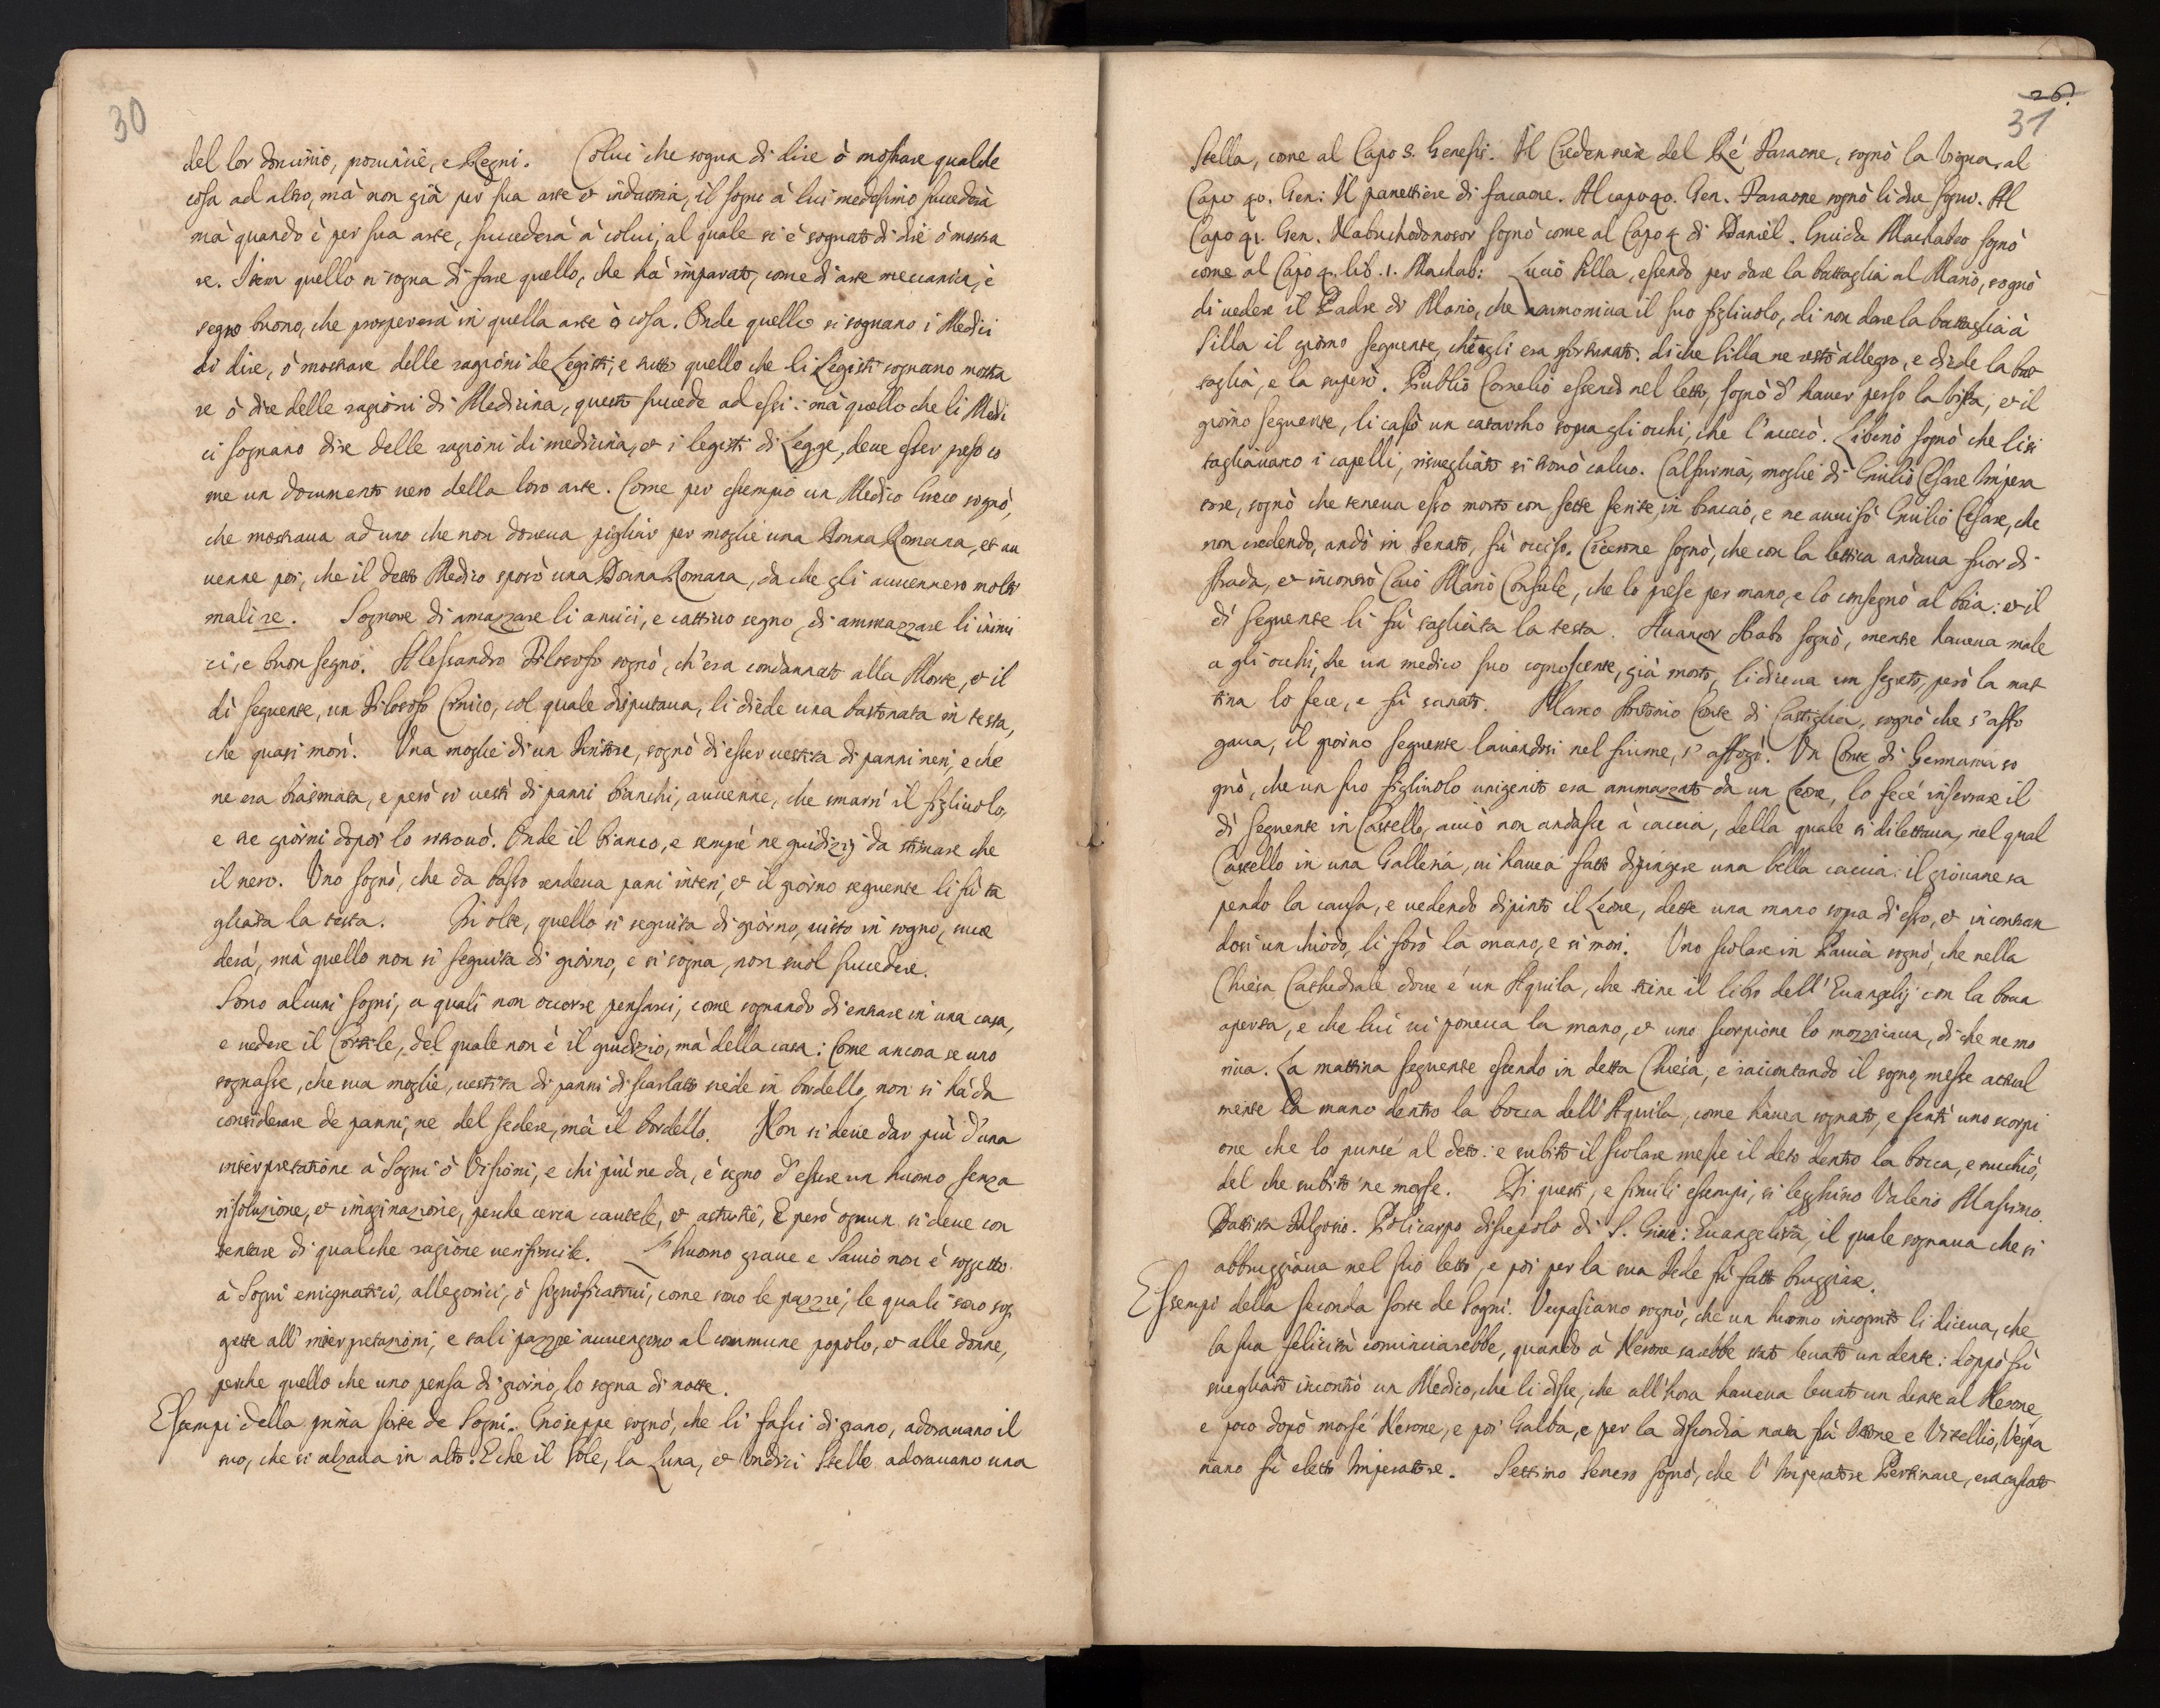 30
del lor dominio, provincie, e Regni. Colui che sogna di dire ò mostrare qualche
cosa ad altro, mà non già per sua arte et industria, il sogno à lui medesimo succederà
mà quando è per sua arte, succederà à colui, al quale si è sognato di dire ò mostra
re. Item quello si sogna di fare quello, che hà imparato, come di arte meccanica, è
segno buono, che prospererà in quella arte ò cosa. Onde quello si sognano i Medici
di dire, ò mostrare delle ragioni de Legisti, e tutto quello che li Legisti sognano mostra
re ò dire delle ragioni di Medicina, questo succede ad essi: mà quello che li Medi
ci sognano dire delle ragioni di medicina, et i legisti di Legge, deue esser preso co
me un documento uero della loro arte. Come per essempio un Medico Greco sognò,
che mostraua ad uno che non doueua pigliar per moglie una Donna Romana, et au
uenne poi, che il detto Medico sposò una Donna Romana, da che gli auuennero molte
malize. Sognare di amazzare li amici, e cattiuo segno, di ammazzare li inimi
ci, e buon segno. Alessandro Filosofo sognò, ch'era condannato alla Morte, et il
dì seguente, un Filosofo Cinico, col quale disputaua, li diede una bastonata in testa,
che quasi morì. Una moglie di un Pittore, sognò di esser uestita di panni neri, e che
ne era biasmata, e però si uestì di panni bianchi, auuenne, che smarrì il figliuolo,
e tre giorni dopoi lo ritrouò. Onde il bianco, e sempre ne giudizij da stimare che
il nero. Uno sognò, che da basso rendeua pani interi, et il giorno seguente li fù ta
gliata la testa. In oltre, quello si seguita di giorno, uisto in sogno, succe
derá, mà quello non si seguita di giorno, e si sogna, non suol succedere.
Sono alcuni sogni, a quali non occorre pensarci, come sognando di entrare in una casa,
e uedere il Cortile, del quale non è il giudizio, mà della casa: Come ancora se uno
sognasse, che sua moglie, uestita di panni di scarlatto siede in bordello, non si hà da
considerare de panni, ne del sedere, mà il bordello. Non si deue dar più d'una
interpretatione à Sogni ò Visioni, e chi più ne da, è segno d'essere un huomo senza
risoluzione, et imaginazione, perche cerca cautele, et astutie, E però ognun si deue con
tentare di qualche ragione uerisimile. L'huomo graue e Sauio non è soggetto
à Sogni enigmatici, allegorici, ò significatiui, come sono le pazzie, le quali sono sog
gette all'interpretazioni, e tali pazzie auuengono al commune popolo, et alle donne,
perche quello che uno pensa di giorno, lo sogna di notte.
Essempi della prima sorte de Sogni. Gioseppe sognò, che li fasci di grano, adorauano il
suo, che si alzaua in alto. E che il Sole, la Luna, et Undici Stelle adorauano una
26.
31
Stella, come al Capo Genesis. Il Credenziere del Ré Faraone, sognò la Vigna, al
Capo 40. Gen: Il panettiere di faraone. Al capo 40. Gen. Faraone sognò li due sogni. Al
Capo 41. Gen. Nabuchodonosor sognò come al Capo 4 di Danièl. Giuda Machabeo sognò
come al Capo lib. 1. Machab: Lucio Silla, essendo per dare la battaglia al Mario, sognò
di uedere il Padre di Mario, che ammoniua il suo figliuolo, di non dare la battaglia à
Silla il giorno seguente, che egli era sfortunato: di che Silla ne restò allegro, e diede la bat
taglia, e la superò. Publio Cornelio essendo nel letto, sognò d'hauer perso la vista, et il
giorno seguente, li cascò un catarrho sopra gli occhi, che l'acciecò. sognò che li si
tagliauano i capelli, risuegliato si trouò caluo. Calfurnia, moglie di Giulio Cesare Impera
tore, sognò che teneua esso morto con sette ferite, in braccio, e ne auuisò Giulio Cesare, che
non credendo, andò in Senato, fù occiso. Cicerone sognò, che con la lettica andaua fuor di
strada, et incontrò Caio Mario Consule, che lo prese per mano, e lo consegnò al boia: et il
dì seguente li fù tagliata la testa. Arabo sognò, mentre haueua male
a gli occhi, che un medico suo cognoscente, già morto, li diceua un segreto, però la mat
tina lo fece, e fù sanato. Marco Antonio Conte di Castiglia, sognò che s'affo
gaua, il giorno seguente lauandosi nel fiume, s'affogò. Un Conte di Germania so
gnò, che un suo figliuolo unigenito era ammazzato da un Leone, lo fece inserrare il
dì seguente in Castello, acciò non andasse à caccia, della quale si dilettaua, nel qual
Castello in una Galleria, ui hauea fatto dipingere una bella caccia: il giouane sa
pendo la causa, e uedendo dipinto il Leone, dette una mano sopra d'esso, et incontran
dosi un chiodo, li forò la mano, e si morì. Uno scolare in Pauia sognò, che nella
Chiesa Cathedrale doue é un Aquila, che tiene il libro dell'Euangelij con la bocca
aperta, e che lui ui poneua la mano, et uno scorpione lo mozzicaua, di che ne mo
riua. La mattina seguente essendo in detta Chiesa, e raccontando il sogno, messe attual
mente la mano dentro la bocca dell'Aquila, come hauea sognato, e sentì uno scorpi
one che lo punse al deto: e subito il scolare messe il deto dentro la bocca, e succhiò,
del che subito ne morse. Di questi, e simili essempi, si legghino Valerio Massimo.
Battista Fulgosio. Policarpo discepolo di S. Gioue: Euangelista, il quale sognaua che si
abbruggiaua nel suo letto, e poi per la sua Fede fù fatto bruggiare.
Essempi della seconda sorte de Sogni. Vespasiano sognò, che un huomo incognito li diceua, che
la sua felicità cominciarebbe, quando à Nerone sarebbe stato leuato un dente: doppò fù
suegliato incontrò un Medico, che li disse, che all'hora haueua leuato un dente al Nerone,
e poco dopò morse Nerone, e poi Galba, e per la discordia nata frà Ottone e Vitellio, Vespa
siano fù eletto Imperatore. Settimo Seuero sognò, che l'Imperatore Pertinace, era cascato